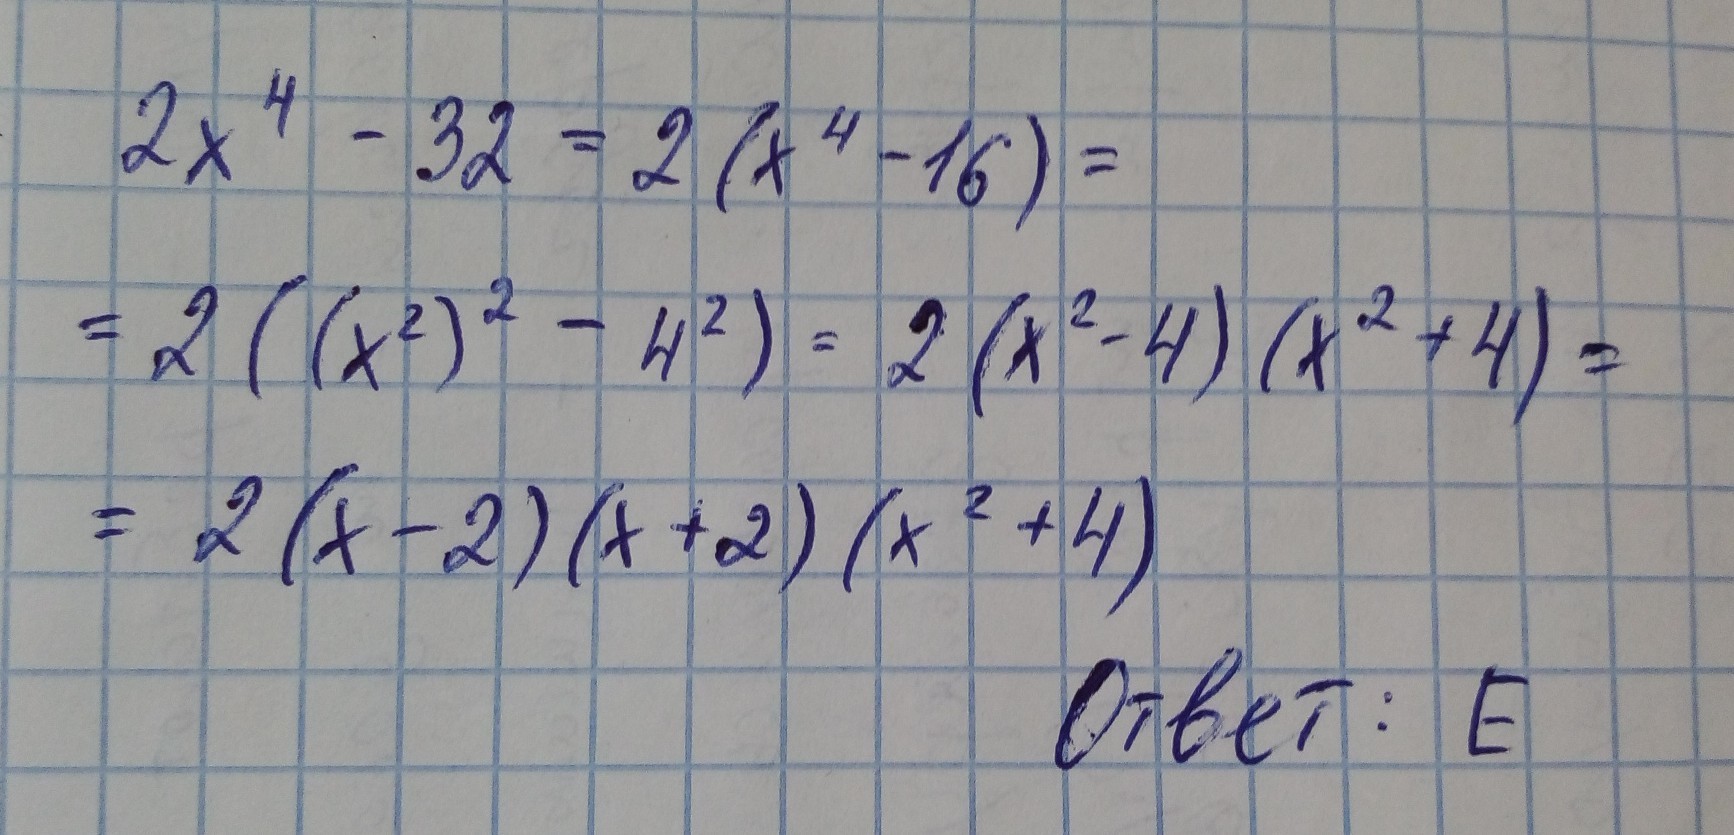 2x⁴ - 32 = 2(x⁴ - 16) =
= 2((x²)² - 4²) = 2(x² - 4)(x² + 4) =
= 2(x - 2)(x + 2)(x² + 4)
Ответ: E